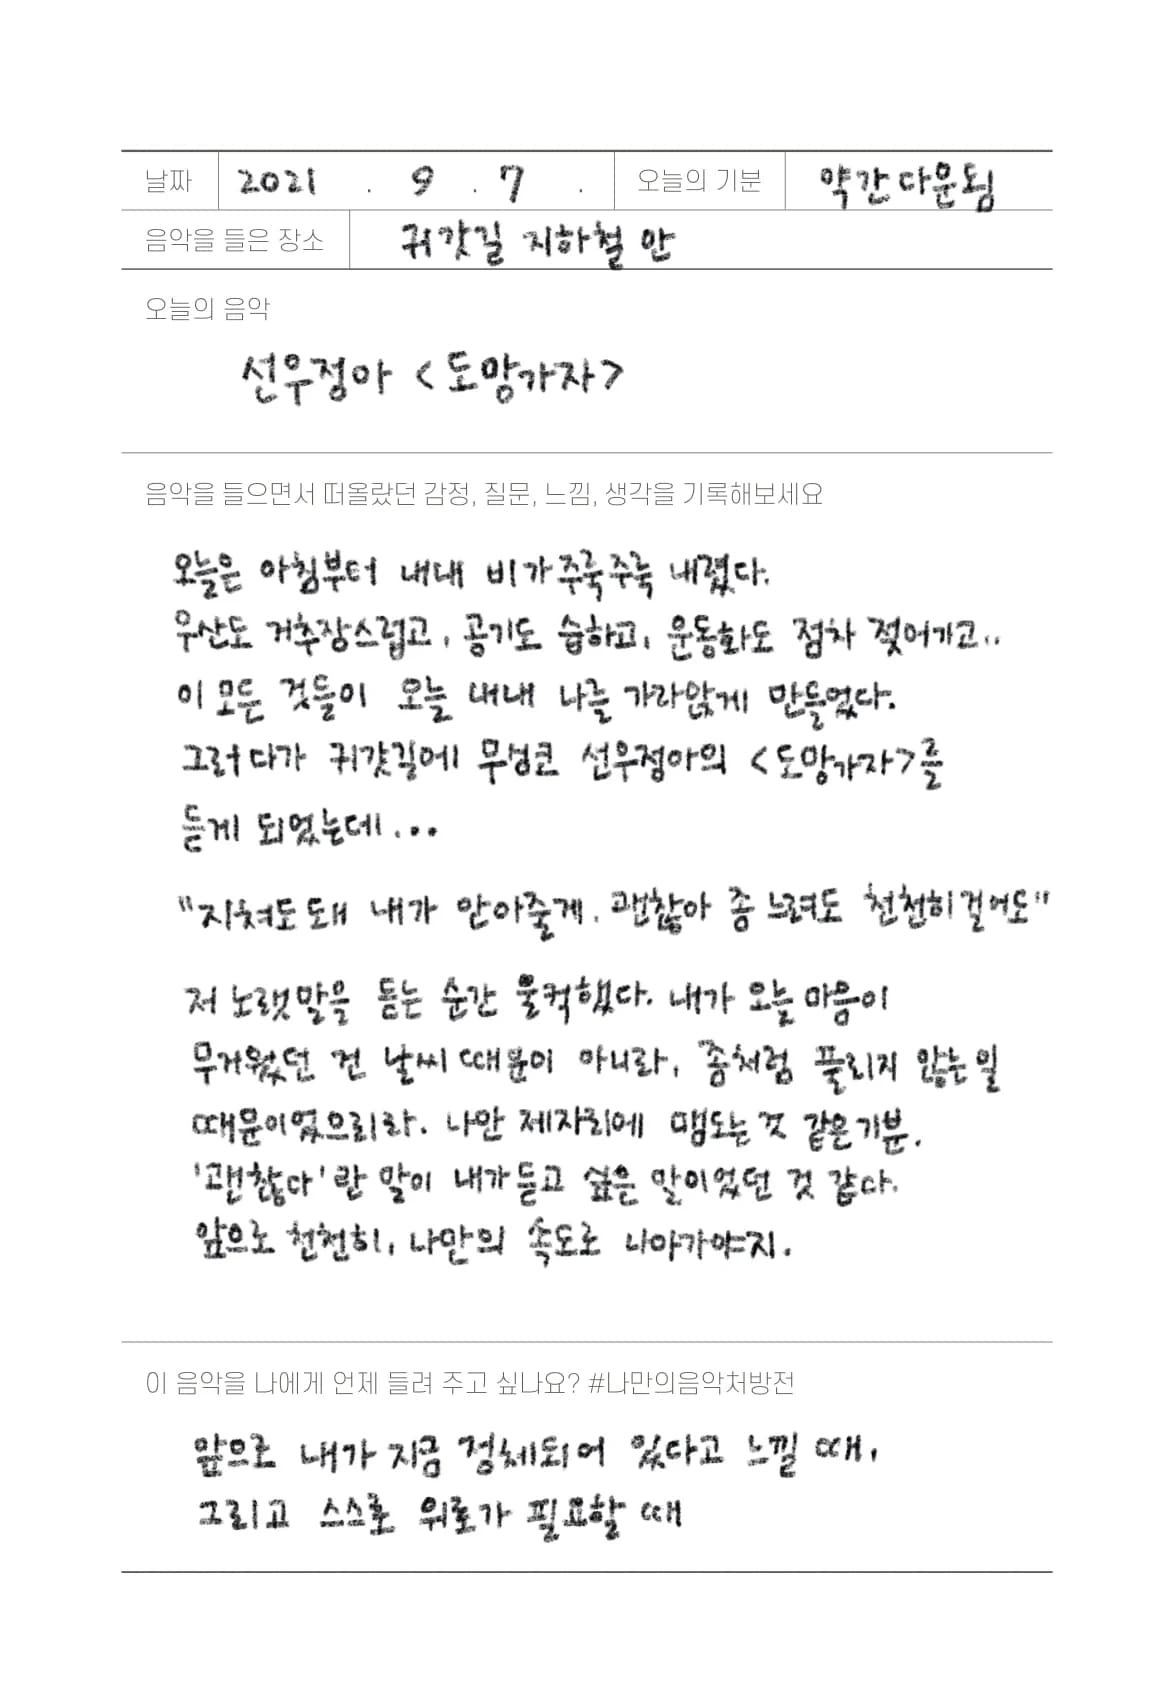 날짜 2021 . 9 . 7 . 오늘의 기분 약간 다운됨
음악을 들은 장소 귀갓길 지하철 안
오늘의 음악
선우정아 <도망가자>
음악을 들으면서 떠올랐던 감정, 질문, 느낌, 생각을 기록해보세요
오늘은 아침부터 내내 비가 주룩주룩 내렸다.
우산도 거추장스럽고, 공기도 습하고, 운동화도 점차 젖어가고..
이 모든 것들이 오늘 내내 나를 가라앉게 만들었다.
그러다가 귀갓길에 무심코 선우정아의 <도망가자>를
듣게 되었는데...
"지쳐도 돼 내가 안아줄게. 괜찮아 좀 느려도 천천히 걸어도"
저 노랫말을 듣는 순간 울컥했다. 내가 오늘 마음이
무거웠던 건 날씨 때문이 아니라, 좀처럼 풀리지 않는 일
때문이었으리라. 나만 제자리에 맴도는 것 같은 기분.
'괜찮다'란 말이 내가 듣고 싶은 말이었던 것 같다.
앞으로 천천히, 나만의 속도로 나아가야지.
이 음악을 나에게 언제 들려 주고 싶나요? #나만의음악처방전
앞으로 내가 지금 정체되어 있다고 느낄 때,
그리고 스스로 위로가 필요할 때